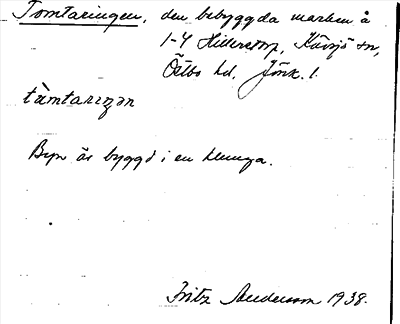 Tomtaringen, den bebyggda marken å
1-4 Hillerstorp, Kävsjö sn,
Östbo hd, Jönk. l.
tåmtarıŋən
Byn är byggd i en klunga.
Fritz Andersson 1938.